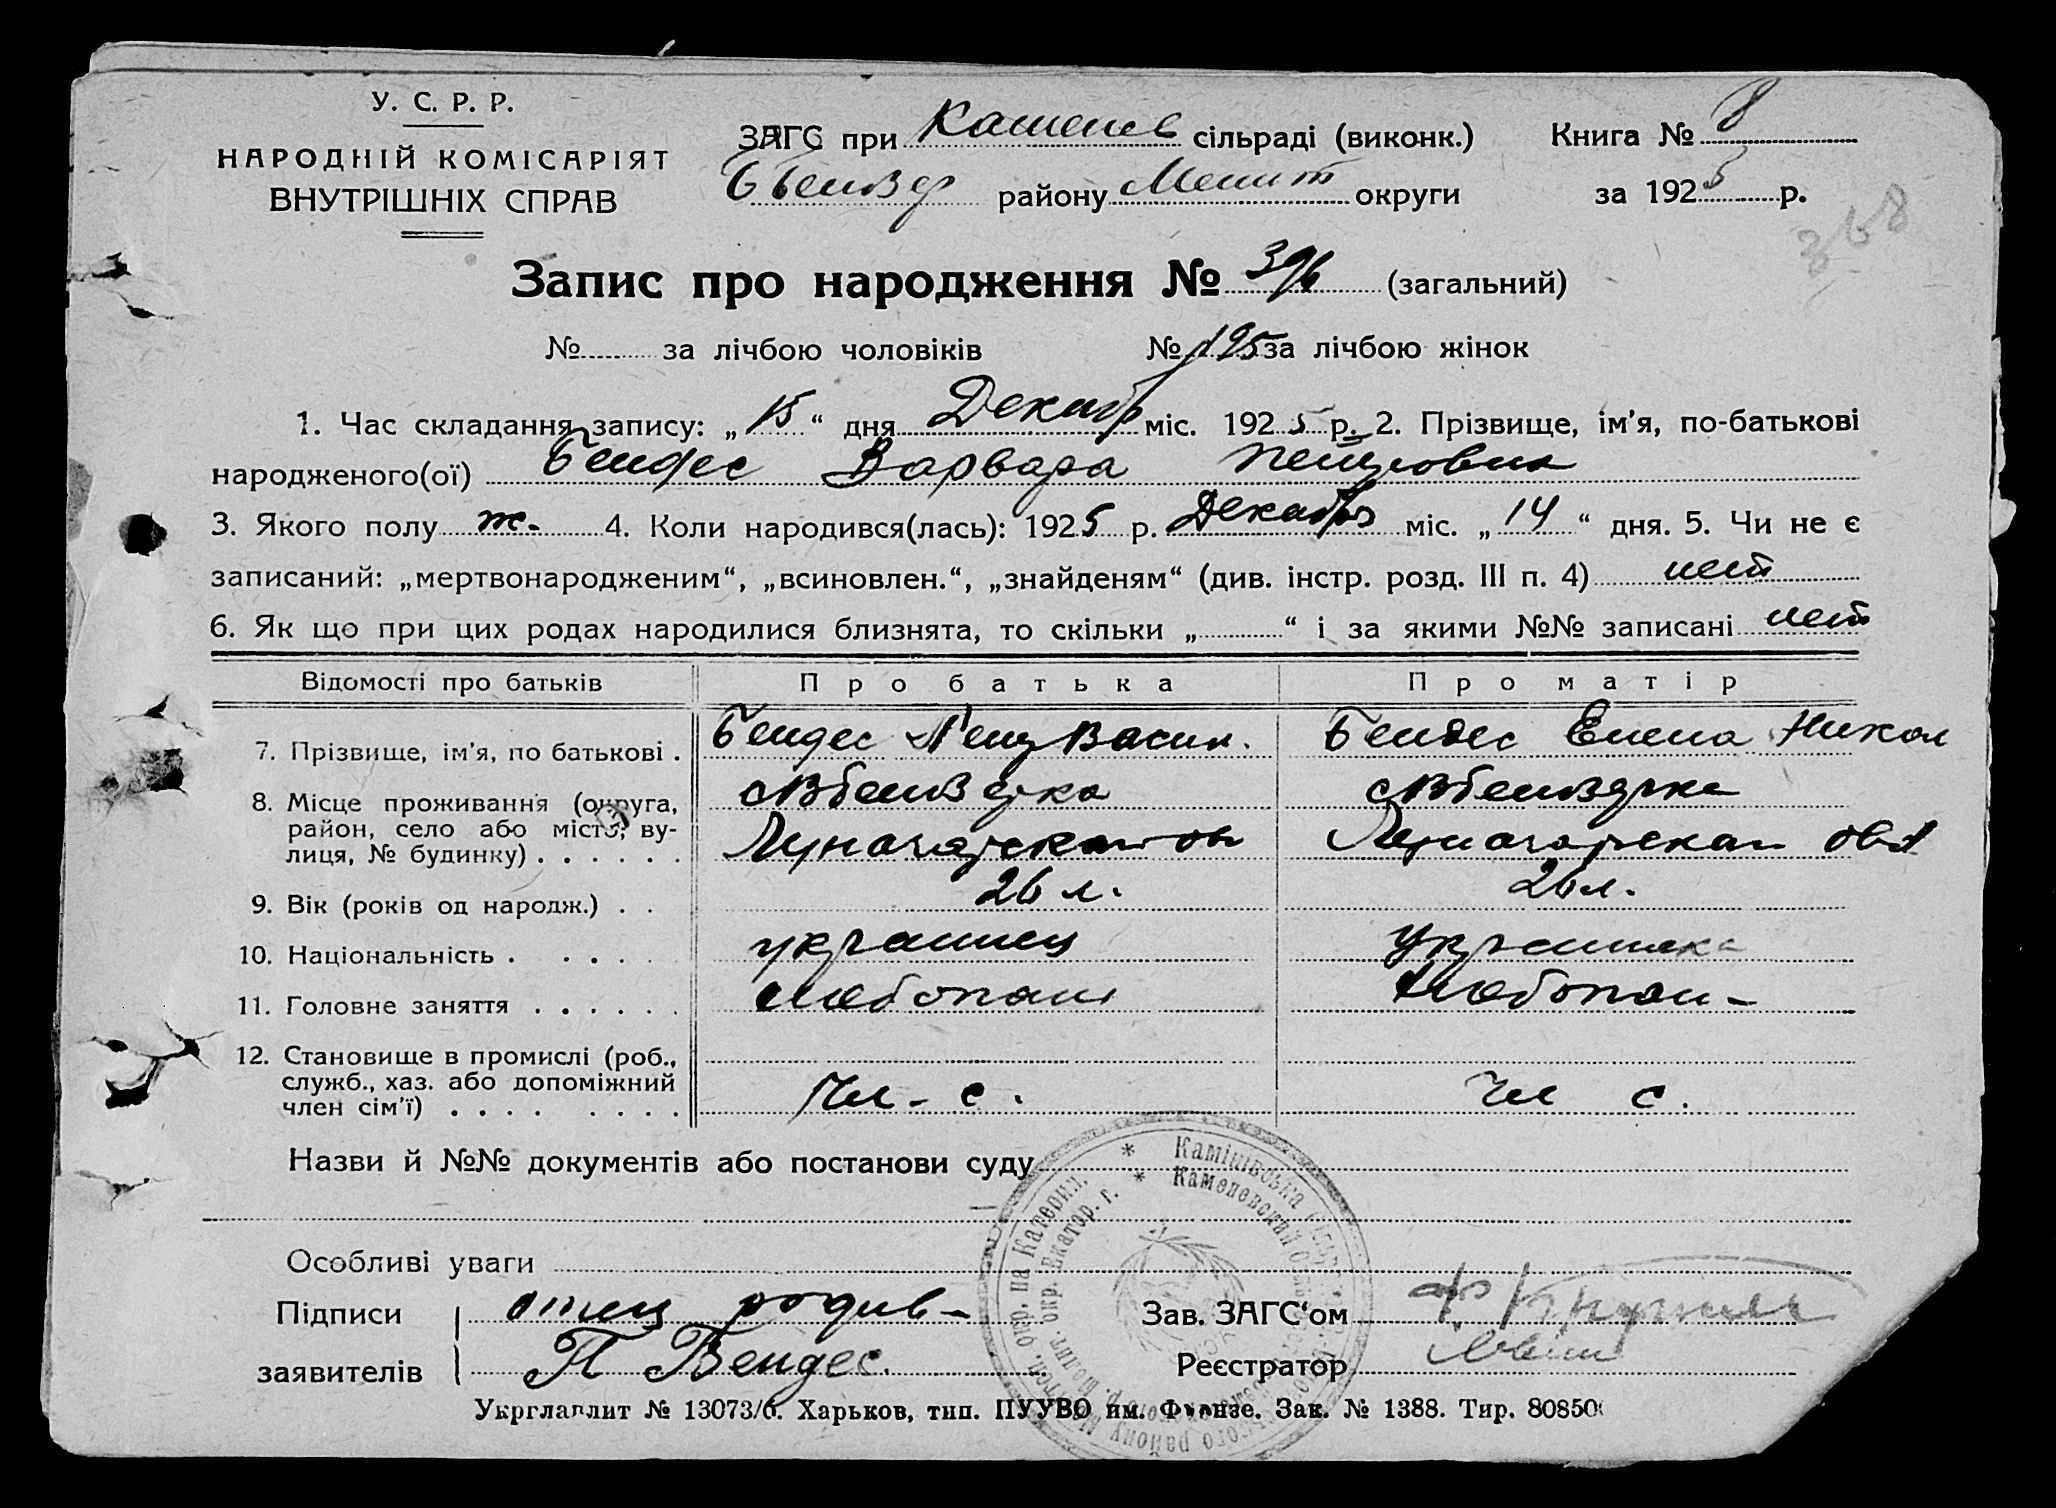 У. С. Р. Р.
НАРОДНІЙ КОМІСАРІЯТ
ВНУТРІШНІХ СПРАВ
ЗАГС при Каменев сільраді (виконк.)
району Мелит округи
Книга № 8
за 1925 р.
368
Запис про народження № 396 (загальний)
№ за лічбою чоловіків № 195 за лічбою жінок
1. Час складання запису: „15“ дня Декабр міс. 1925 р. 2. Прізвище, ім'я, по-батькові
народженого(ої) Бендес Варвара Петровна
3. Якого полу ж. 4. Коли народився(лась): 1925 р. Декабр міс. „14“ дня. 5. Чи не є
записаний: „мертвонародженим“, „всиновлен.“, „знайденям“ (див. інстр. розд. III п. 4) нет
6. Як що при цих родах народилися близнята, то скільки „ “ і за якими №№ записані нет
Відомості про батьків Про батька Про матір
7. Прізвище, ім'я, по батькові . Бендес Петр Васил. Бендес Елена Никол
8. Місце проживання (округа,
район, село або місто, ву-
лиця, № будинку)
9. Вік (років од народж.) 26 л. 26 л.
10. Національність украинец украинка
11. Головне заняття хлебопаш хлебопаш-
12. Становище в промислі (роб.,
служб., хаз. або допоміжний
член сім'ї) Чл. с. Чл с.
Назви й №№ документів або постанови суду
Особливі уваги
Підписи отец родив-
заявителів П Бендес.
Зав. ЗАГС'ом
Реєстратор
Укрглавлит № 13073/б. Харьков, тип. ПУУВО им. Фрунзе. Зак. № 1388. Тир. 80850